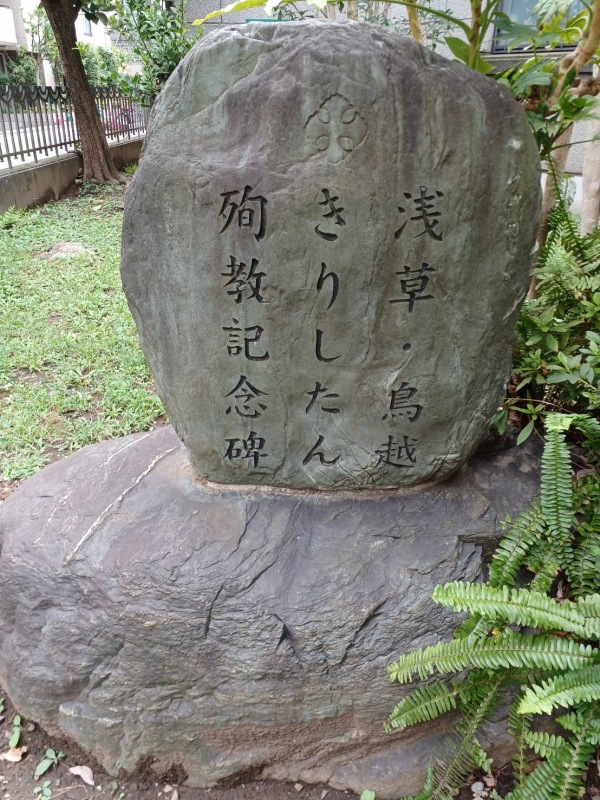 浅草・鳥越
きりしたん
殉教記念碑